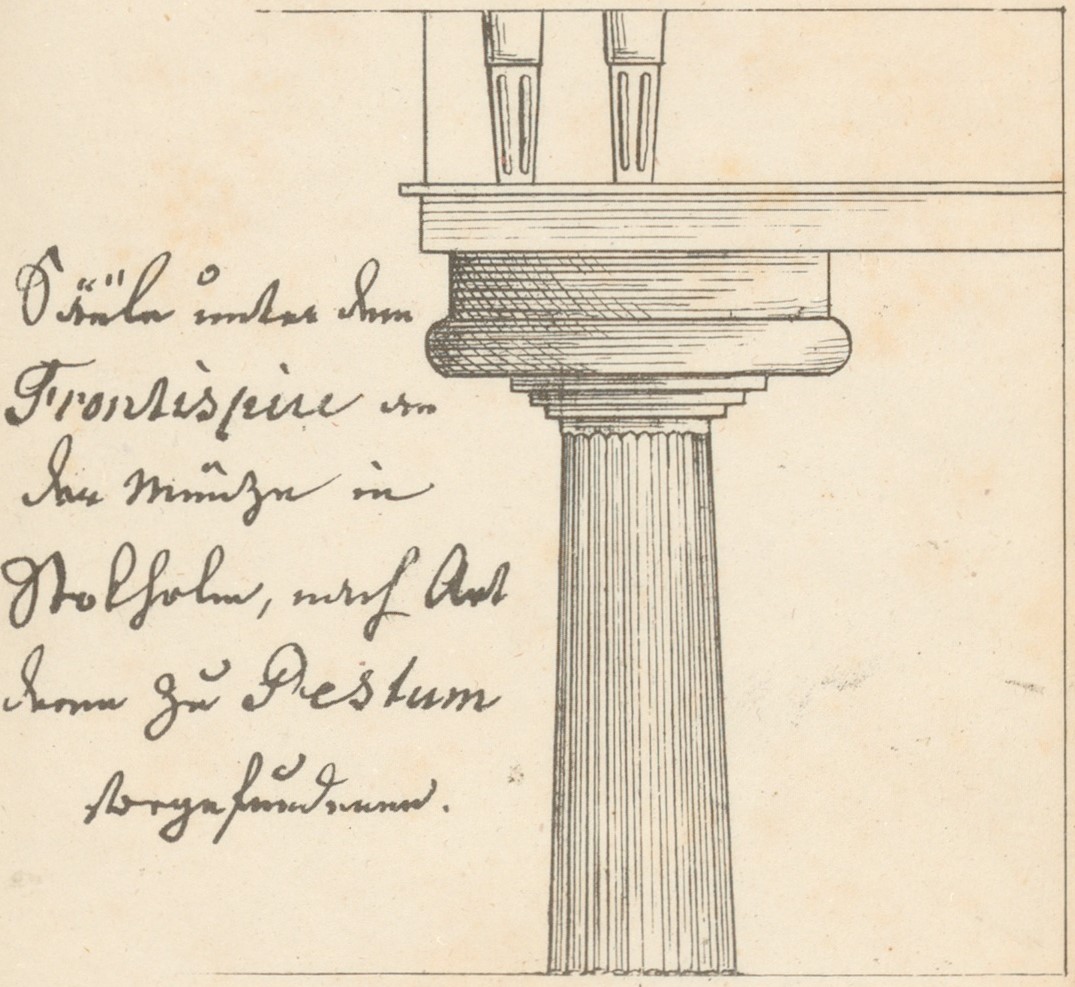 Säule unter dem
Frontispice an
der Münze in
Stokholm, nach Art
deren zu Pestum
vorgefundenen.